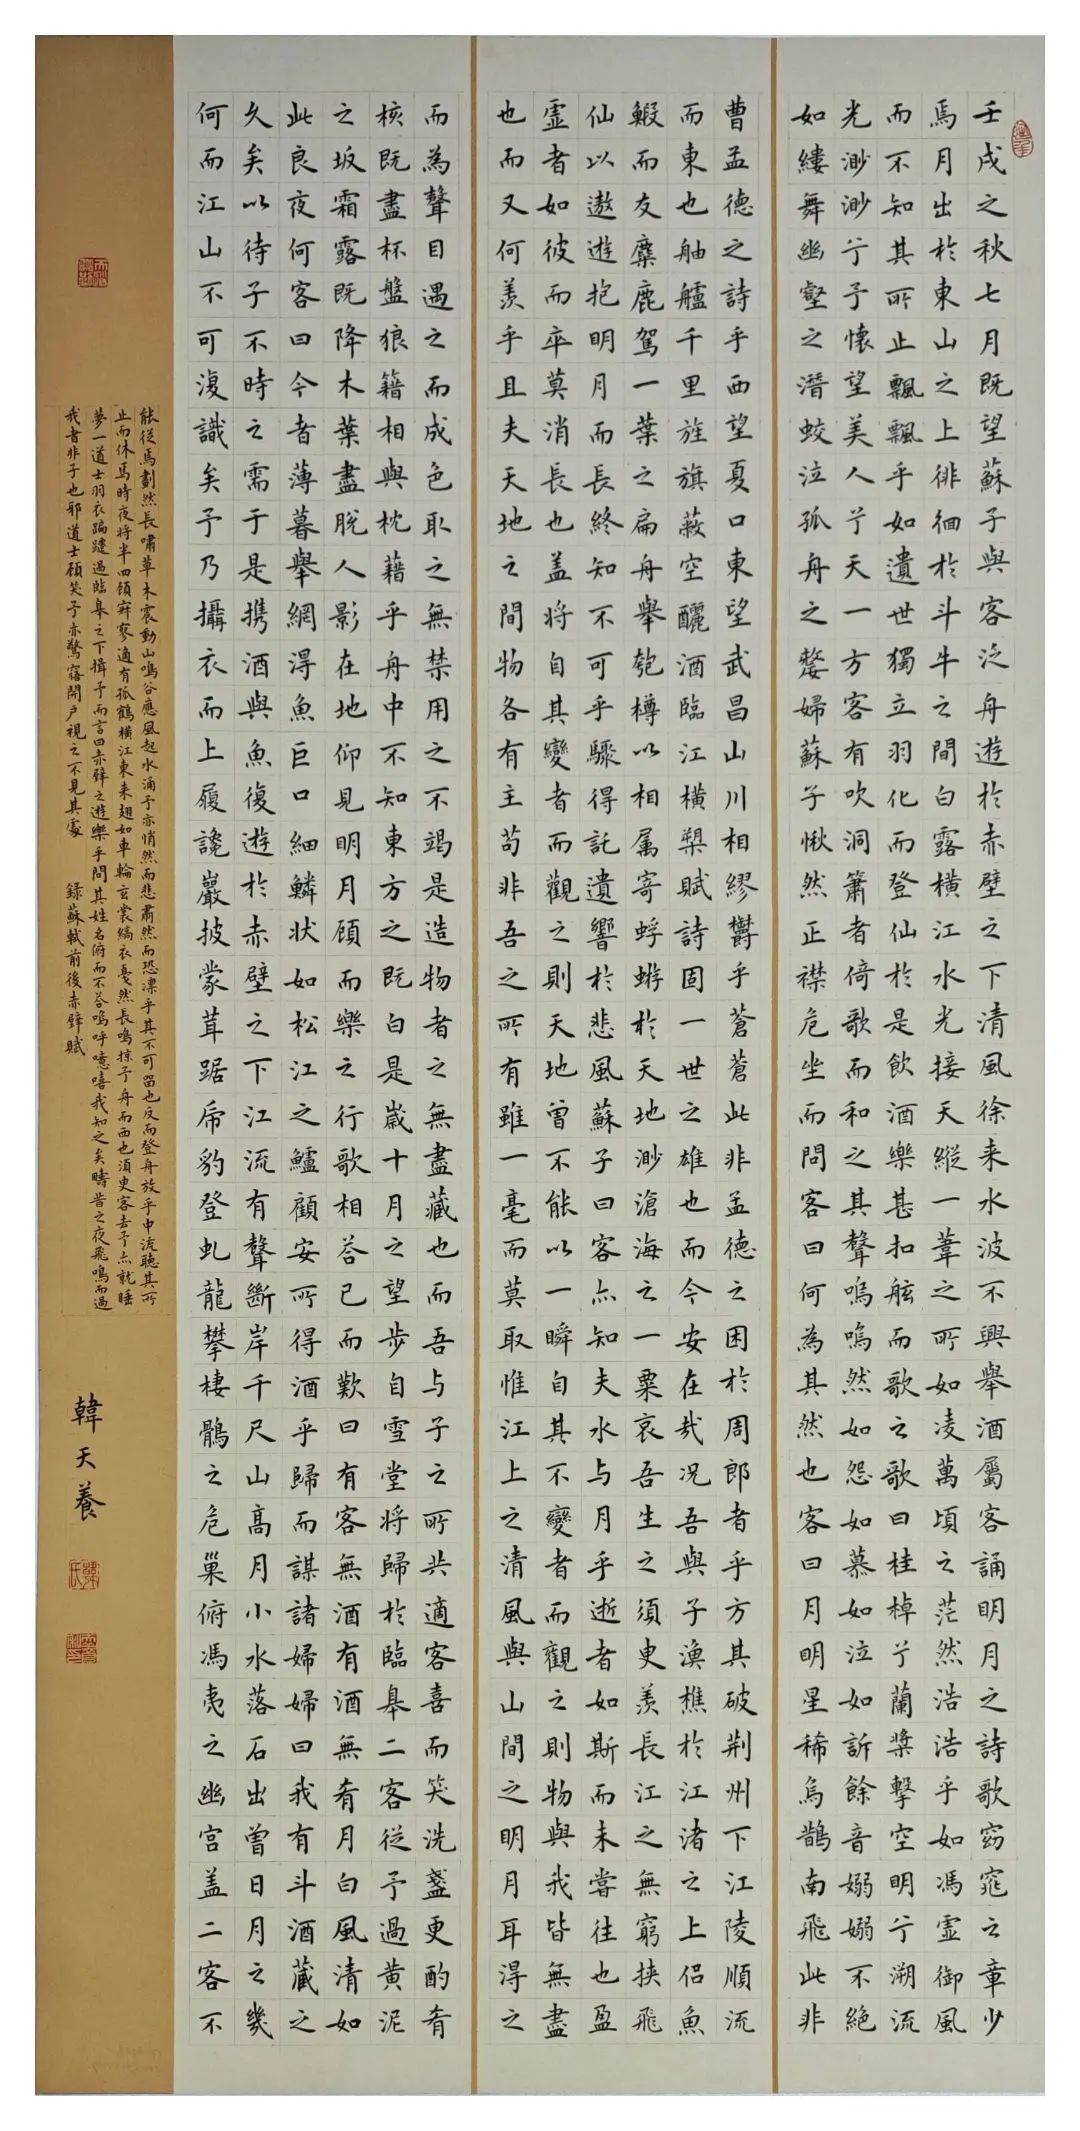 壬戌之秋七月既望蘇子與客泛舟遊於赤壁之下清風徐来水波不興舉酒屬客誦明月之詩歌窈窕之章少
焉月出於東山之上徘徊於斗牛之間白露橫江水光接天縱一葦之所如凌萬頃之茫然浩浩乎如馮虛御風
而不知其所止飄飄乎如遺世獨立羽化而登仙於是飲酒樂甚扣舷而歌之歌曰桂棹兮蘭槳擊空明兮溯流
光渺渺兮予懷望美人兮天一方客有吹洞簫者倚歌而和之其聲嗚嗚然如怨如慕如泣如訴餘音嫋嫋不絕
如縷舞幽壑之潛蛟泣孤舟之嫠婦蘇子愀然正襟危坐而問客曰何為其然也客曰月明星稀烏鵲南飛此非
曹孟德之詩乎西望夏口東望武昌山川相繆欝乎蒼蒼此非孟德之困於周郎者乎方其破荆州下江陵順流
而東也舳艫千里旌旗蔽空釃酒臨江橫槊賦詩固一世之雄也而今安在哉況吾與子漁樵於江渚之上侣魚
鰕而友麋鹿駕一葉之扁舟舉匏樽以相属寄蜉蝣於天地渺滄海之一粟哀吾生之須臾羨長江之無窮挟飛
仙以遨遊抱明月而長終知不可乎驟得託遺響於悲風蘇子曰客亦知夫水与月乎逝者如斯而未嘗往也盈
虛者如彼而卒莫消長也盖將自其變者而觀之則天地曾不能以一瞬自其不變者而觀之則物與我皆無盡
也而又何羨乎且夫天地之間物各有主苟非吾之所有雖一毫而莫取惟江上之清風與山間之明月耳得之
而為聲目遇之而成色取之無禁用之不竭是造物者之無盡藏也而吾与子之所共適客喜而笑洗盞更酌肴
核既盡杯盤狼籍相與枕藉乎舟中不知東方之既白是歲十月之望步自雪堂將歸於臨皋二客從予過黄泥
之坂霜露既降木葉盡脫人影在地仰見明月顧而樂之行歌相答已而歎曰有客無酒有酒無肴月白風清如
此良夜何客曰今者薄暮舉網得魚巨口細鱗狀如松江之鱸顧安所得酒乎歸而謀諸婦婦曰我有斗酒藏之
久矣以待子不時之需于是携酒與魚復遊於赤壁之下江流有聲斷岸千尺山高月小水落石出曾日月之幾
何而江山不可復識矣予乃攝衣而上履讒巖披蒙茸踞虎豹登虬龍攀棲鶻之危巢俯馮夷之幽宮盖二客不
能從焉劃然長嘯草木震動山鳴谷應風起水涌予亦悄然而悲肅然而恐凜乎其不可留也反而登舟放乎中流聽其所
止而休焉時夜將半四顧寂寥適有孤鶴橫江東来翅如車輪玄裳縞衣戛然長鳴掠予舟而西也須臾客去予亦就睡
夢一道士羽衣蹁躚過臨皋之下揖予而言曰赤壁之遊樂乎問其姓名俯而不答嗚呼噫嘻我知之矣疇昔之夜飛鳴而過
我者非子也邪道士顧笑予亦驚寤開戶視之不見其處 錄蘇軾前後赤壁賦
韓天養
韓氏